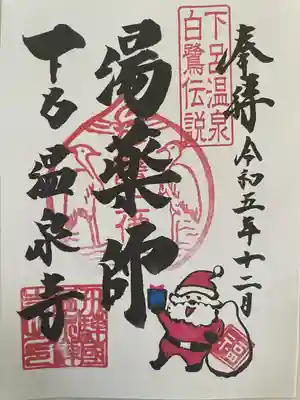 奉拝 令和五年十二月
下呂温泉
白鷺伝説
湯薬師
下呂温泉寺
福